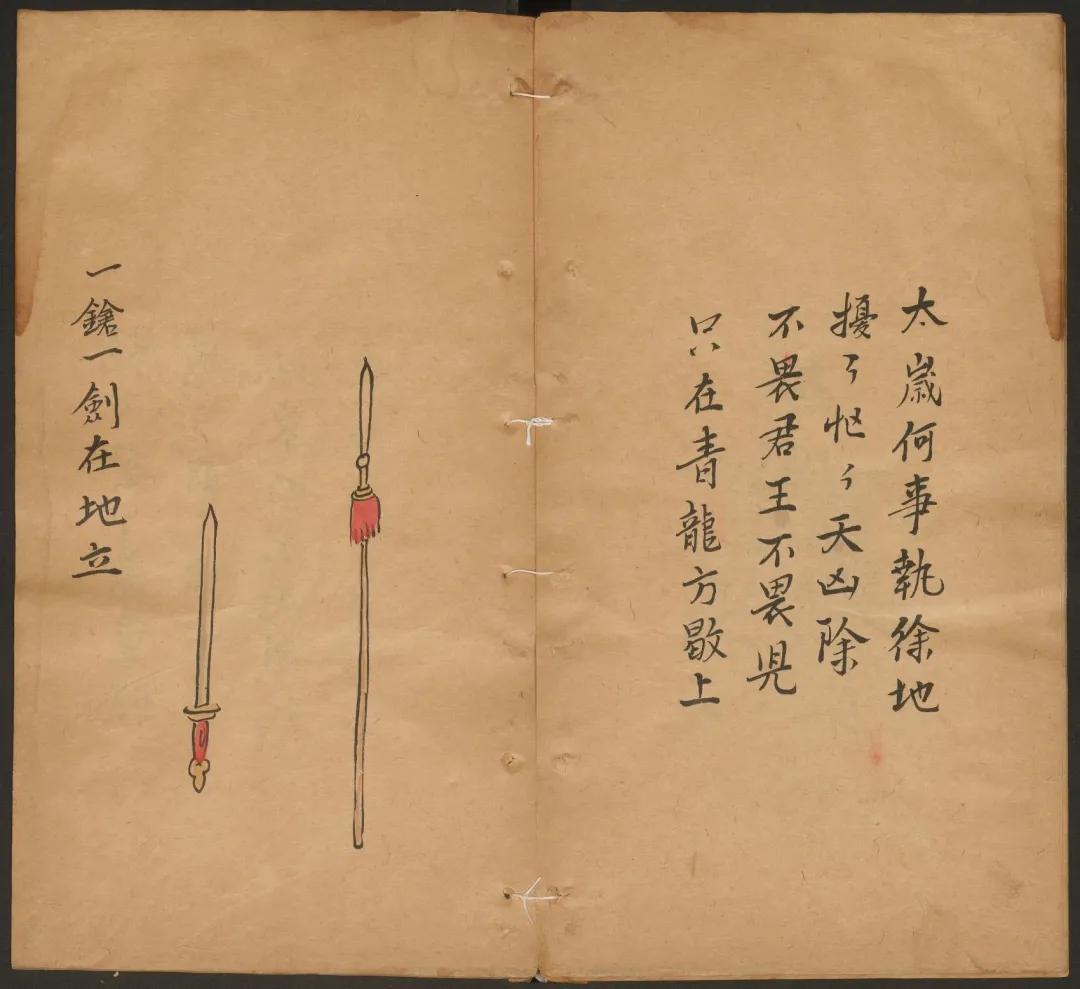 太歲何事執徐地
擾々怄々天凶除
不畏君王不畏児
只在青龍方歇上
一鎗一劍在地立